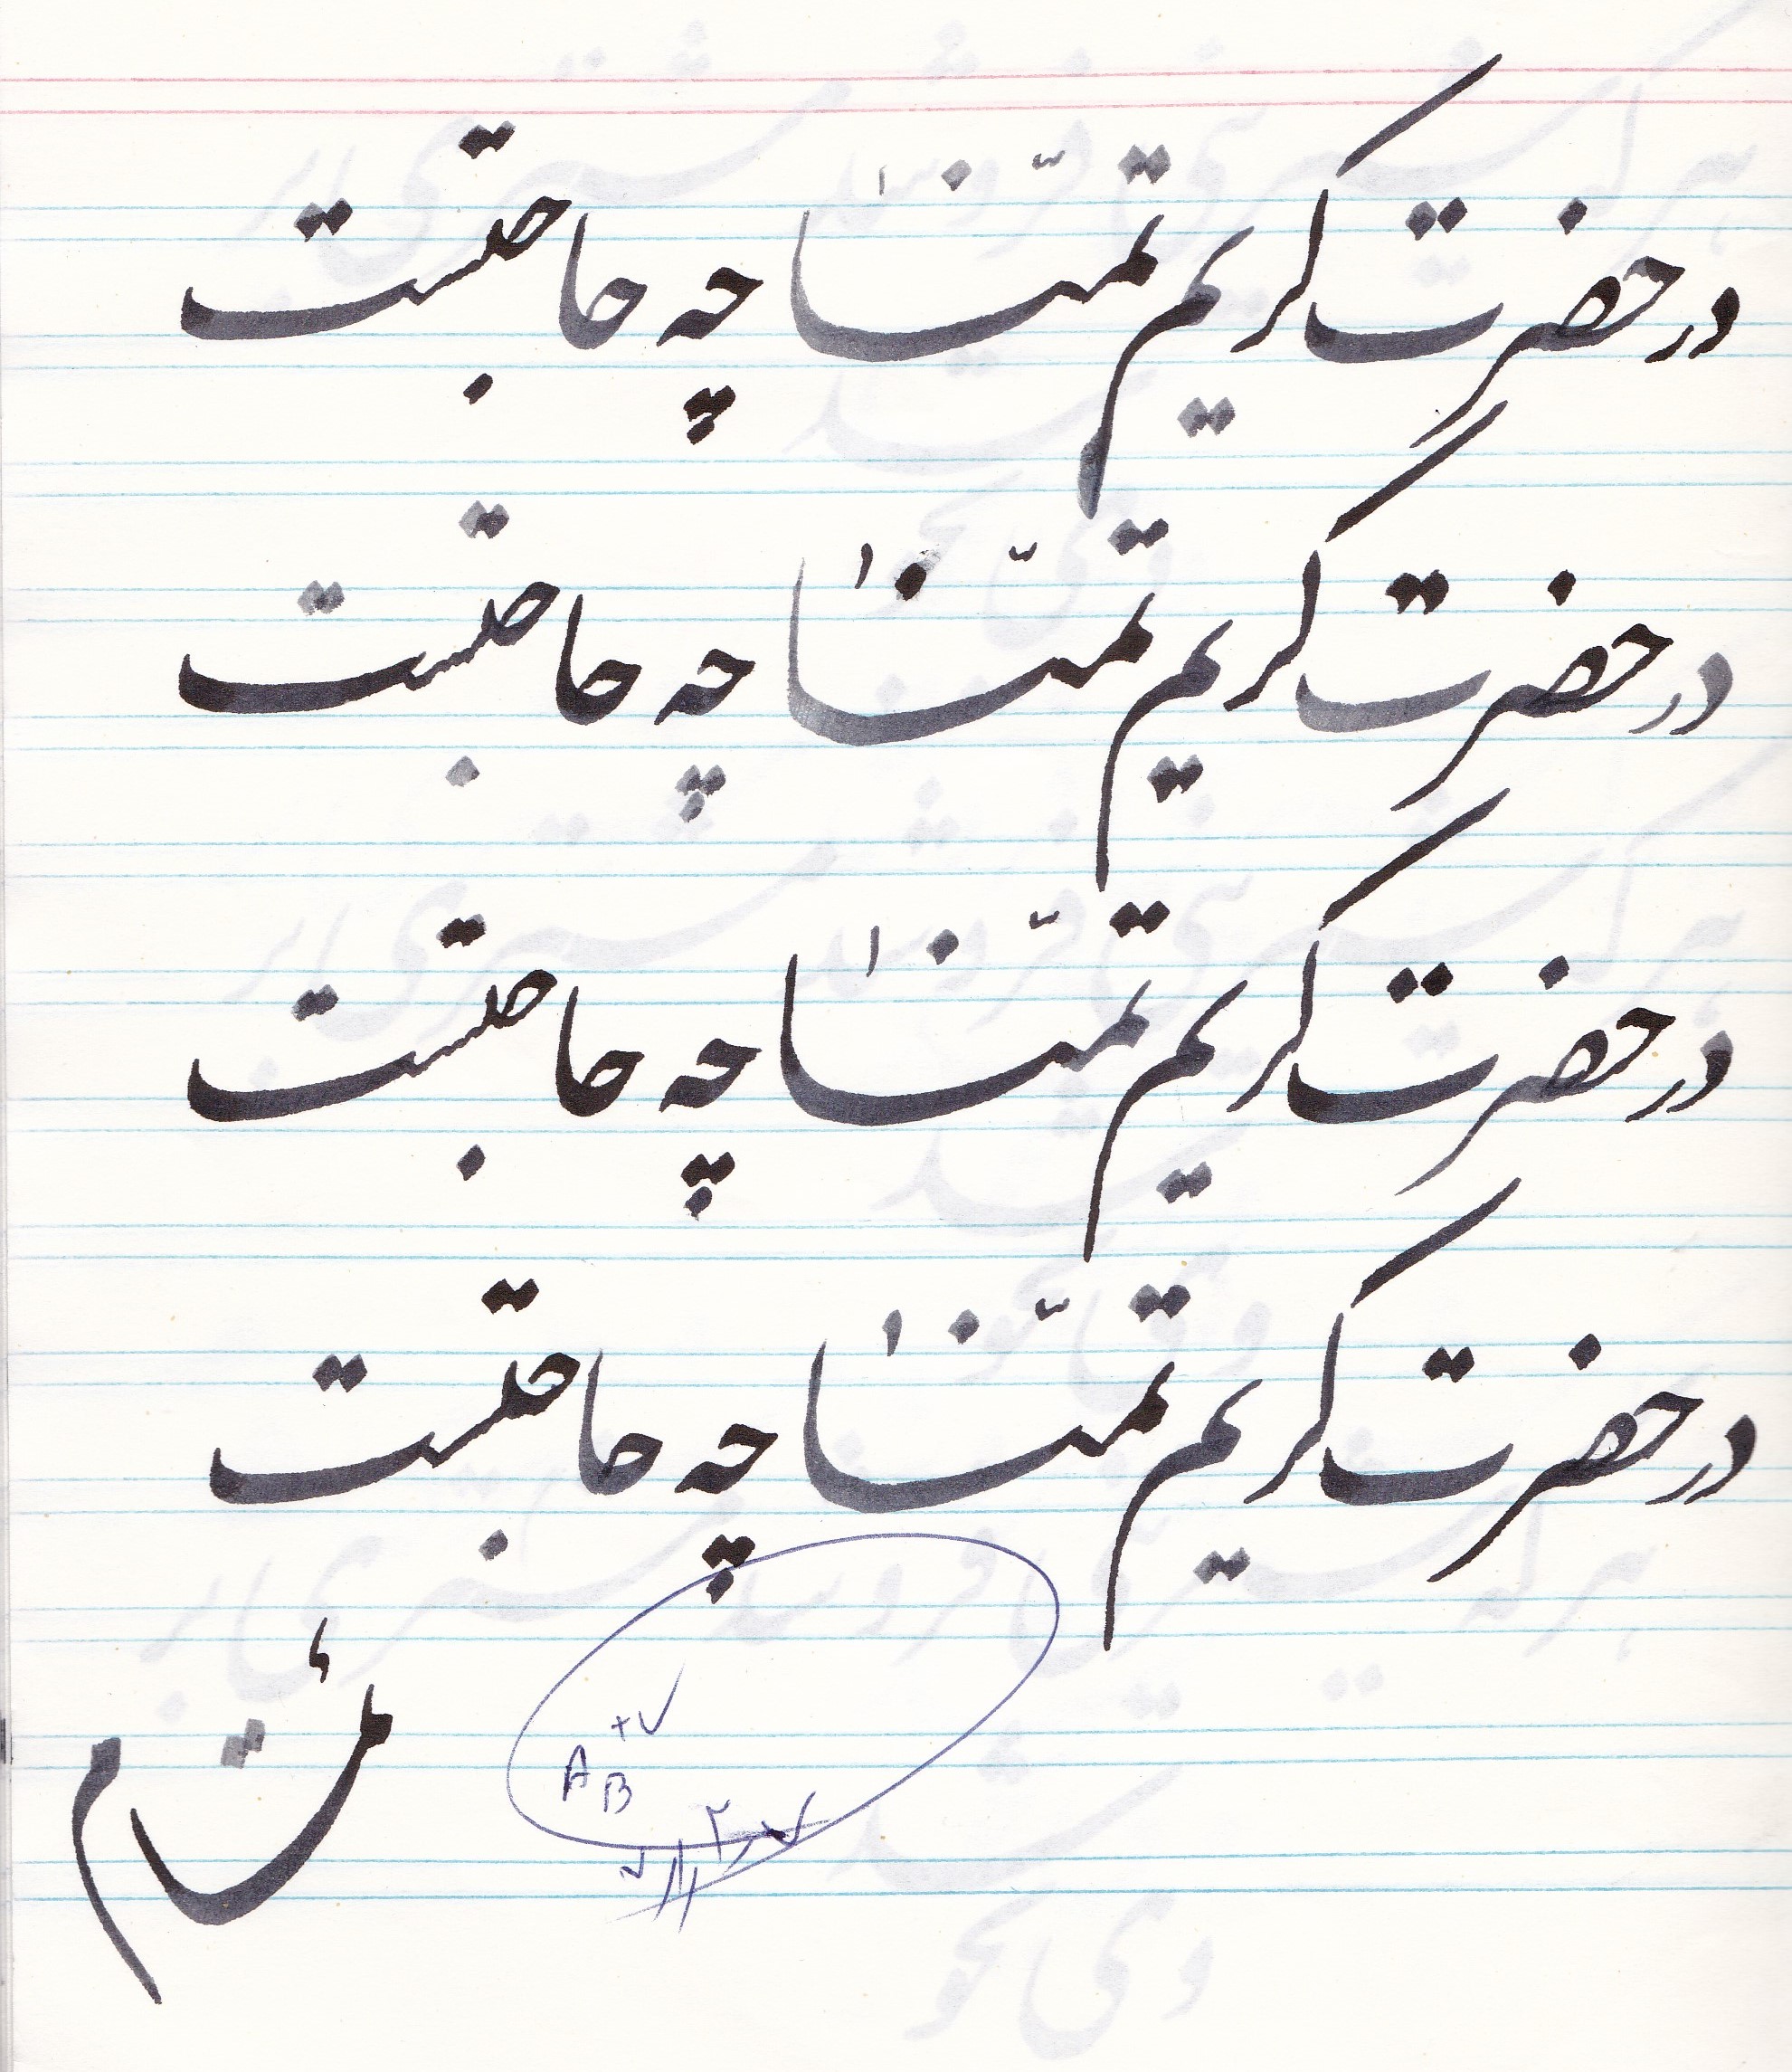 در حضرت کریم تمنّا چه حاجتست
در حضرت کریم تمنّا چه حاجتست
در حضرت کریم تمنّا چه حاجتست
در حضرت کریم تمنّا چه حاجتست
A B +